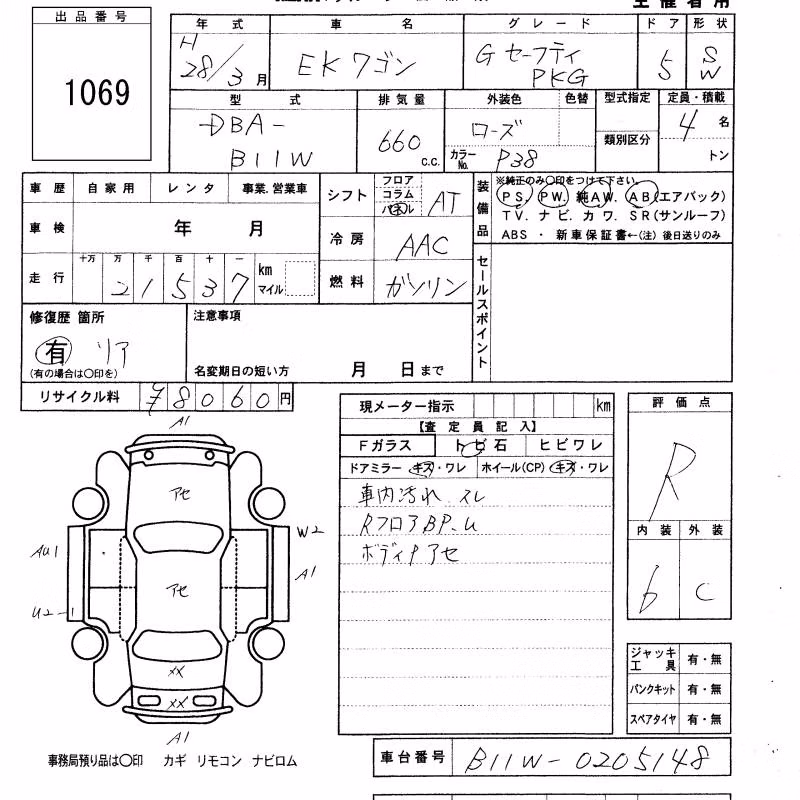 主催者用
出品番号
1069
年式 車名 グレード ドア 形状
H 28/3月 EKワゴン Gセーフティ PKG 5 SW
型式 排気量 外装色 色替 型式指定 定員・積載
DBA-B11W 660 c.c. ローズ 類別区分 4名
カラーNo. P38 トン
車歴 自家用 レンタ 事業.営業車
車検 年 月
走行 十万 万 千 百 十 一 km マイル
21537
シフト フロア コラム パネル AT
冷房 AAC
燃料 ガソリン
装備品
※純正のみ○印をつけて下さい.
PS. PW. 純AW. AB(エアバック)
TV. ナビ. カワ. SR(サンルーフ)
ABS ・ 新車保証書←(注)後日送りのみ
セールスポイント
修復歴 箇所
有 リア
(有の場合は○印を)
注意事項
名変期日の短い方 月 日まで
リサイクル料 ¥8060円
現メーター指示 km
【査定員記入】
Fガラス トビ石 ヒビワレ
ドアミラー キズ・ワレ ホイール(CP) キズ・ワレ
車内汚れ.スレ
RフロアBP.U
ボディアセ
評価点
R
内装 外装
6 C
A1
アセ
AU1
W2
A1
アセ
U2-1
XX
XX
A1
ジャッキ工具 有・無
パンクキット 有・無
スペアタイヤ 有・無
事務局預り品は○印 カギ リモコン ナビロム
車台番号 B11W-0205148